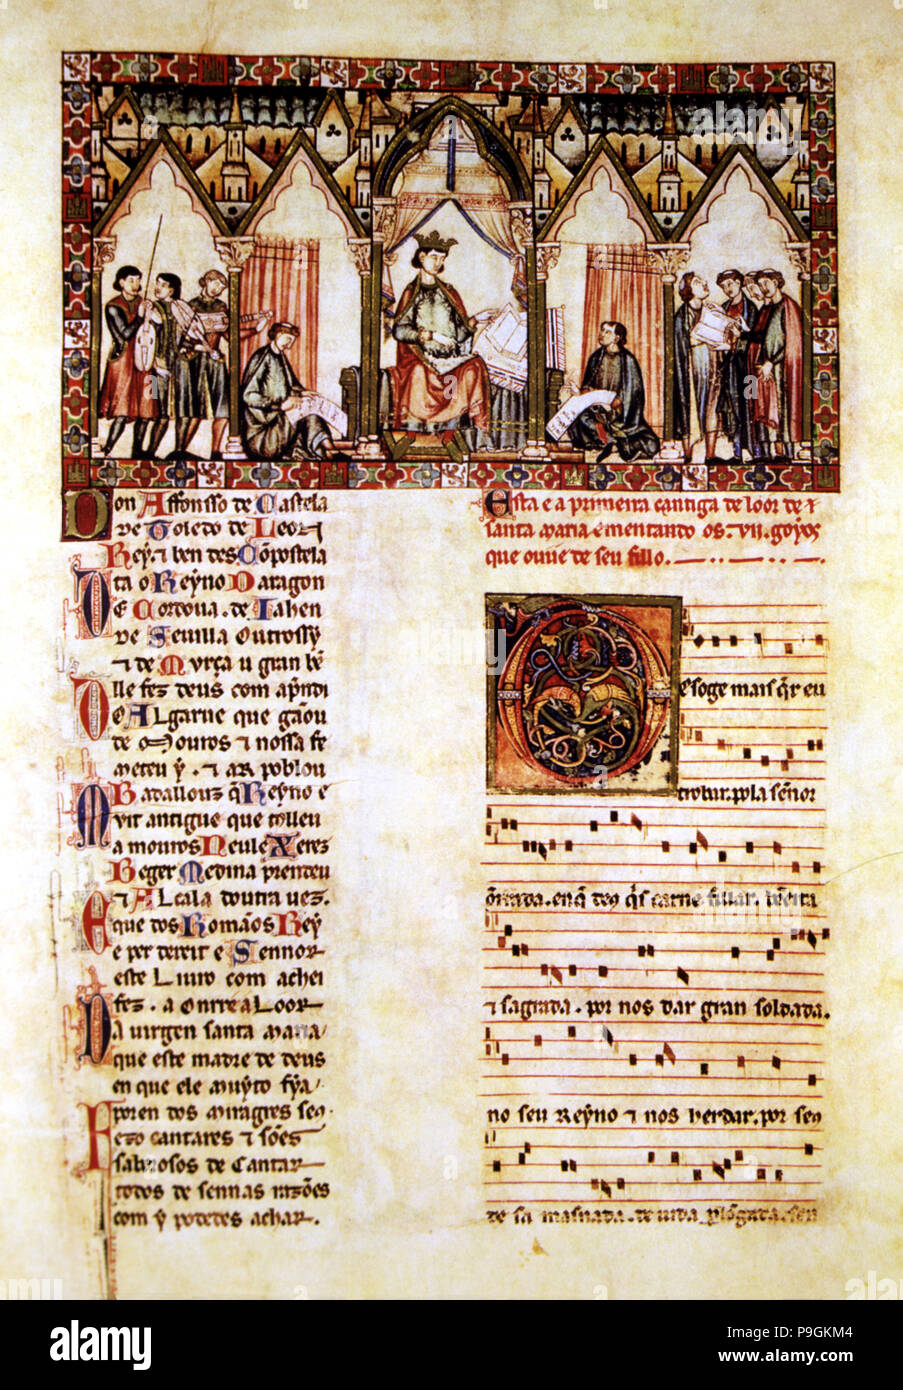 Don Affonsso de Castela
de Toledo de Leon
Rey ⁊ ben des Cōpostela
ta o Reyno Daragon
De Cordoua. de Iahen
de Seuilla outrossy
⁊ de Murça u gran bē
lle fez deus com apndi
Do Algarue que gāou
de Mouros ⁊ nossa fe
meteu y. ⁊ ar poblou
Badallouz q̄ Reyno e
Muit antigue que tolleu
a mouros Neule Xerez
Beger Medina prendeu
⁊ Alcala doutra uez.
Eque dos Romãos Rey
e per dereit e Sennor
este Liuro com achei
fez. a onrr e a Loor
Da uirgen santa maria
que este madre de deus
en que ele muyto fya
Poren dos miragres seus
fezo cantares ⁊ sões
saborosos de cantar
todos de sennas razões
com y podedes achar.
Esta e a primeira cantiga de loor de
santa maria ementando os. vii. goyos
que ouue de seu fillo.
Desoge mais q̄r eu
trobar. pola señor
ōrrada. en q̄ d's q̄s carne fillar. bēeita
⁊ sagrada. por nos dar gran soldada.
no seu Reyno ⁊ nos herdar. por seus
de sa masnada. de uida plōgada. sen
alamy
Image ID: P9GKM4
www.alamy.com